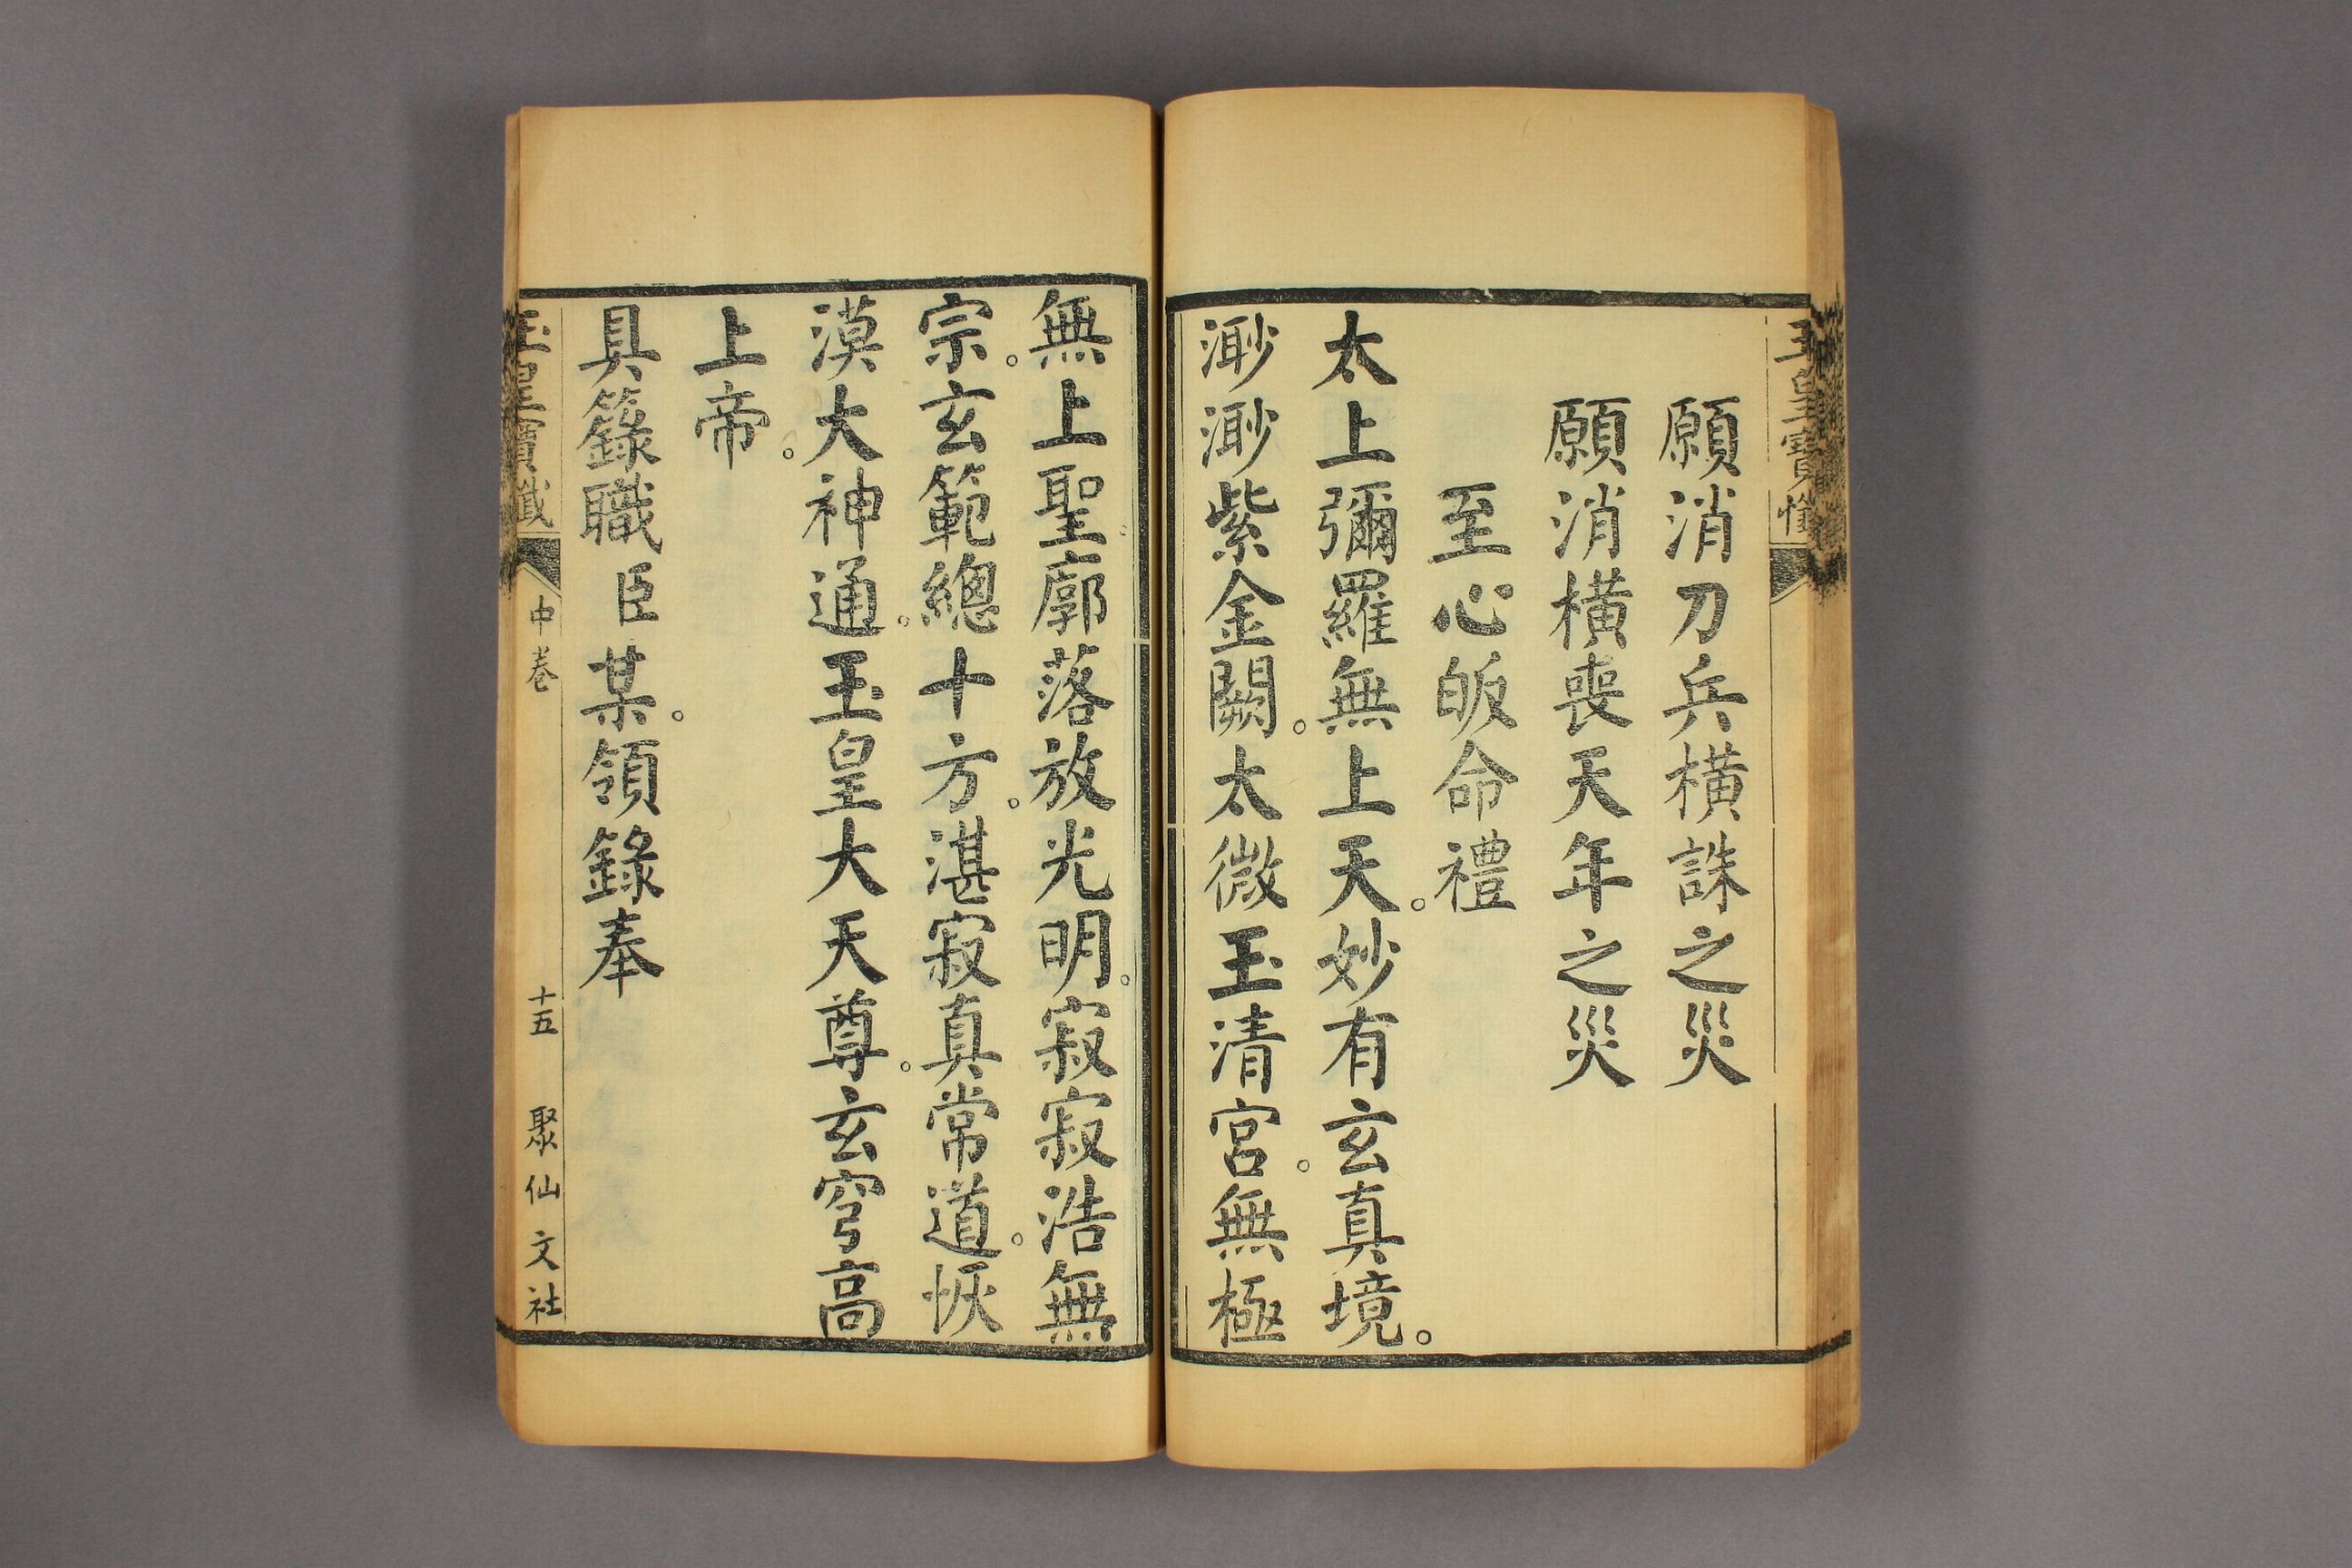 玉皇寶懺
願消刀兵橫誅之災
願消橫喪天年之災
至心皈命禮
太上彌羅無上天。妙有玄真境。
渺渺紫金闕。太微玉清宮。無極
無上聖廓落放光明。寂寂浩無
宗。玄範總十方。湛寂真常道。恢
漠大神通。玉皇大天尊。玄穹高
上帝。
具籙職臣某。領錄奉
玉皇寶懺
中卷
十五
聚仙文社